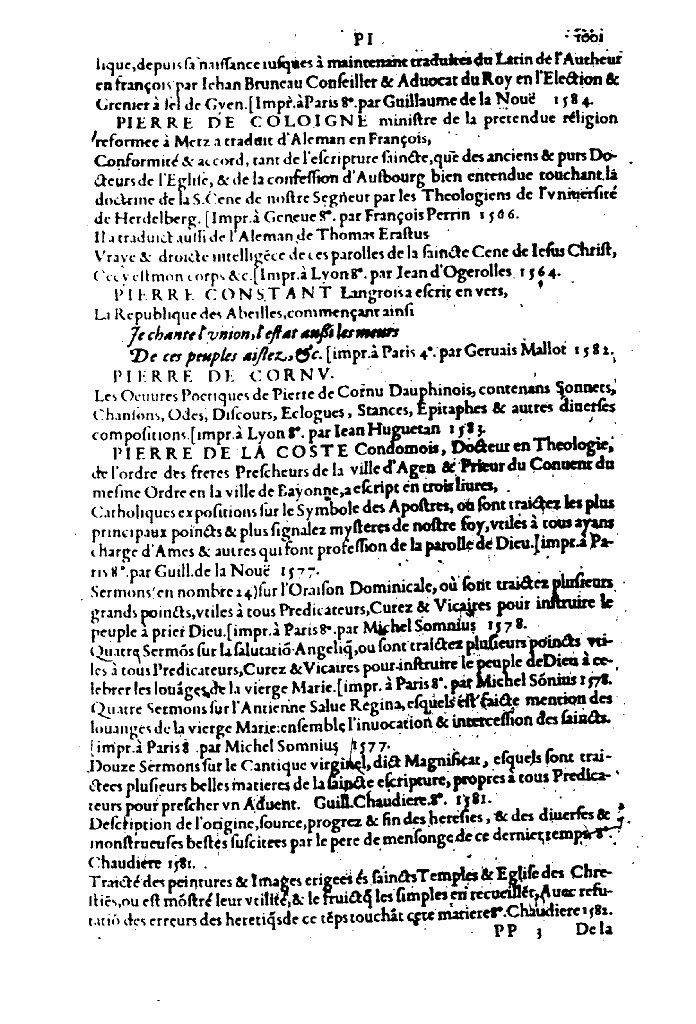 PI 1001
lique, depuis sa naissance iusques à maintenant traduites du Latin de l'Autheur
en françois par Iehan Bruneau Conseiller & Aduocat du Roy en l'Election &
Grenier à sel de Gyen. [Impr. à Paris 8°. par Guillaume de la Nouë 1584.
PIERRE DE COLOIGNE ministre de la pretendue religion
reformee à Metz a traduit d'Aleman en François,
Conformité & accord, tant de l'escripture saincte, que des anciens & purs Do-
cteurs de l'Eglise, & de la confession d'Ausbourg bien entendue touchant la
doctrine de la S. Cene de nostre Segneur par les Theologiens de l'vniuersité
de Herdelberg. [Impr. à Geneue 8°. par François Perrin 1566.
Il a traduict aussi de l'Aleman de Thomas Erastus
Vraye & droicte intelligẽce de ces parolles de la saincte Cene de Iesus Christ,
Cecy est mon corps &c. [Impr. à Lyon 8°. par Iean d'Ogerolles 1564.
PIERRE CONSTANT Langrois a escrit en vers,
La Republique des Abeilles, commençant ainsi
Je chante l'vnion, l'estat aussi les meurs
De ces peuples aislez, &c. [impr. à Paris 4°. par Geruais Mallot 1582.
PIERRE DE CORNV.
Les Oeuures Poetiques de Pierre de Cornu Dauphinois, contenans Sonnets,
Chansons, Odes, Discours, Eclogues, Stances, Epitaphes & autres diuerses
compositions. [impr. à Lyon 8°. par Iean Huguetan 1583.
PIERRE DE LA COSTE Condomois, Docteur en Theologie,
de l'ordre des freres Prescheurs de la ville d'Agen & Prieur du Conuent du
mesme Ordre en la ville de Bayonne, a escript en trois liures,
Catholiques expositions sur le Symbole des Apostres, où sont traictez les plus
principaux poincts & plus signalez mysteres de nostre foy, vtiles à tous ayans
charge d'Ames & autres qui font profession de la parolle de Dieu. [impr. à Pa-
ris 8°. par Guill. de la Nouë 1577.
Sermons (en nombre 24) sur l'Oraison Dominicale, où sont traictez plusieurs
grands poincts, vtiles à tous Predicateurs, Curez & Vicaires pour instruire le
peuple à prier Dieu. [impr. à Paris 8°. par Michel Somnius 1578.
Quatre Sermõs sur la salutatiõ Angeliq̃, ou sont traictez plusieurs poincts vti-
les à tous Predicateurs, Curez & Vicaires pour instruire le peuple de Dieu à ce-
lebrer les louãges de la vierge Marie. [impr. à Paris 8°. par Michel Sõnius 1578.
Quatre Sermons sur l'Antienne Salue Regina, esquels est faicte mention des
louanges de la vierge Marie: ensemble l'inuocation & intercession des saincts.
[impr. à Paris 8. par Michel Somnius 1577.
Douze Sermons sur le Cantique virginel, dict Magnificat, esquels sont trai-
ctees plusieurs belles matieres de la saincte escripture, propres à tous Predica-
teurs pour prescher vn Aduent. Guill. Chaudiere. 8°. 1581.
Description de l'origine, source, progrez & fin des heresies, & des diuerses &
monstrueuses bestes suscitees par le pere de mensonge de ce dernier temps 8°.
Chaudiere 1581.
Traicté des peintures & Images erigees és saincts Temples & Eglise des Chre-
stiẽs, ou est mõstré leur vtilité, & le fruict q̃ les simples en recueillẽt, Auec refu-
tatiõ des erreurs des heretiq̃s de ce tẽps touchãt cette matiere 8°. Chaudiere 1582.
PP 3 De la